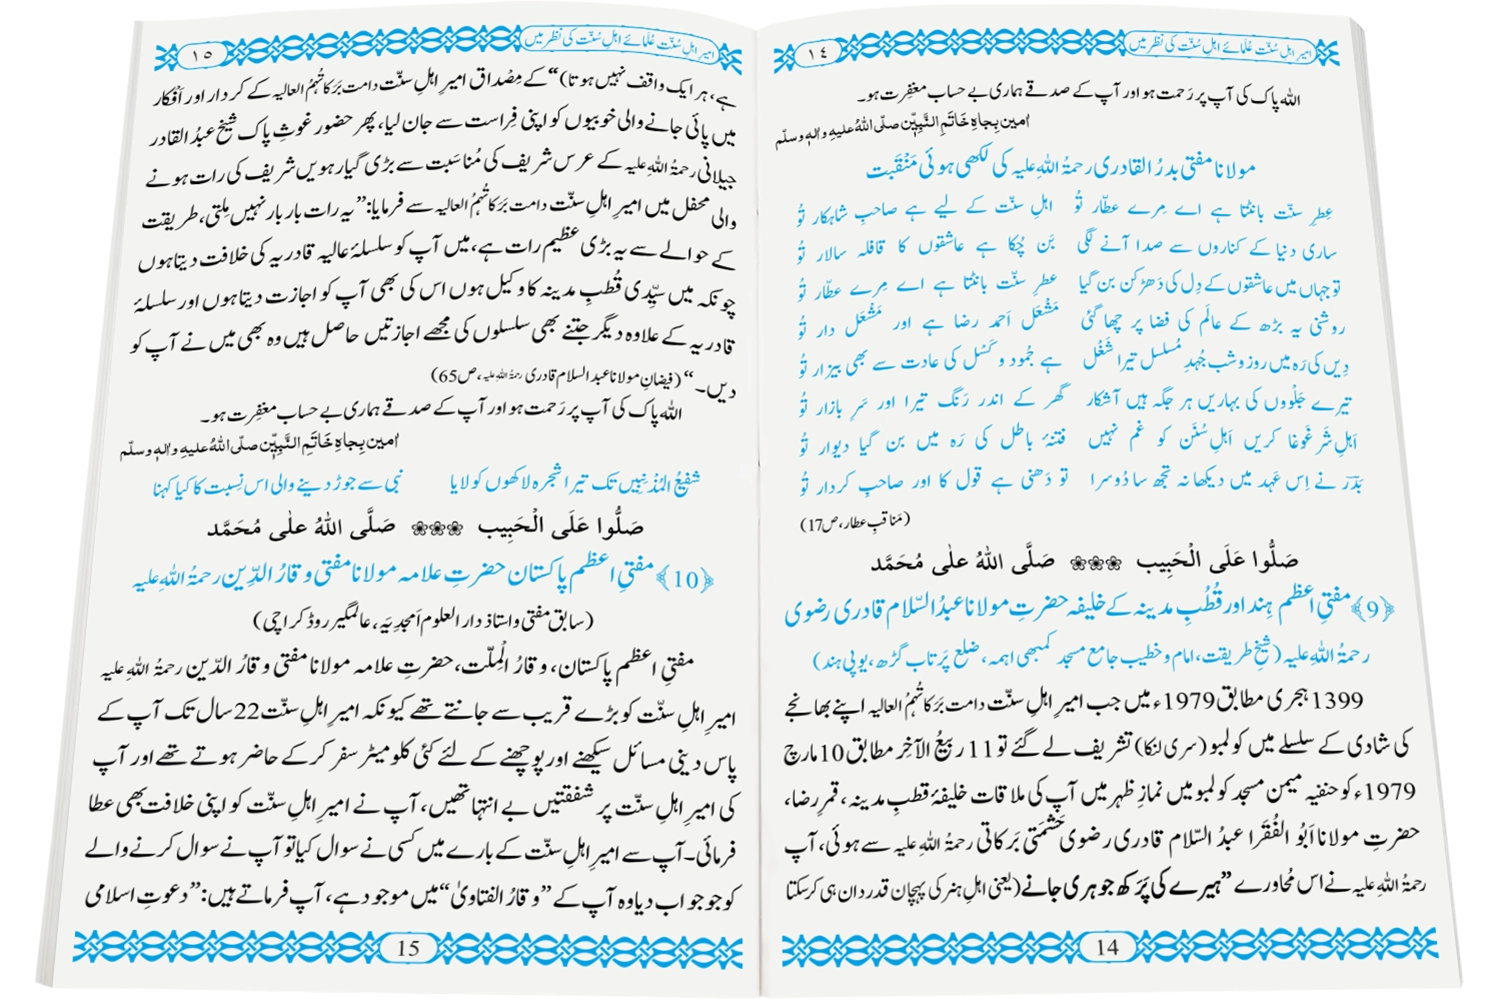 امیرِ اہلِ سُنّت عُلَمائے اہلِ سُنّت کی نظر میں
١٤
اللہ پاک کی آپ پر رَحمت ہو اور آپ کے صدقے ہماری بے حساب مغفِرت ہو۔
اٰمین بِجاہِ خَاتَمِ النَّبِیّٖن صلَّی اللہُ علیهِ واٰلهٖ وسلَّم
مولانا مفتی بدرُ القادری رحمۃُ اللہِ علیہ کی لکھی ہوئی مَنْقَبت
عِطرِ سنّت بانٹتا ہے اے مِرے عطّار تُو اہلِ سنّت کے لیے ہے صاحبِ شاہکار تُو
ساری دنیا کے کناروں سے صدا آنے لگی بَن چُکا ہے عاشقوں کا قافلہ سالار تُو
تو جہاں میں عاشقوں کے دِل کی دَھڑکن بن گیا عطرِ سنّت بانٹتا ہے اے مرے عطّار تُو
روشنی یہ بڑھ کے عالَم کی فضا پر چھا گئی مَشْعَلِ اَحمد رضا ہے اور مَشْعَل دار تُو
دِیں کی رَہ میں روز و شب جُہدِ مُسلسل تیرا شَغْل ہے جُمود و کَسْل کی عادت سے بھی بیزار تُو
تیرے جَلْووں کی بہاریں ہر جگہ ہیں آشکار گھر کے اندر رَنگ تیرا اور سَرِ بازار تُو
اَہلِ شَر غَوغا کریں اَہلِ سُنَن کو غم نہیں فتنۂ باطل کی رَہ میں بن گیا دیوار تُو
بَدْرؔ نے اِس عَہد میں دیکھا نہ تجھ سا دُوسرا تو دَھنی ہے قول کا اور صاحبِ کردار تُو
(مَناقبِ عطار، ص17)
صَلُّوا عَلَی الْحَبِیب ❀❀❀ صَلَّی اللهُ علٰی مُحَمَّد
﴿9﴾ مفتیِ اعظم ہند اور قُطبِ مدینہ کے خلیفہ حضرتِ مولانا عبدُ السّلام قادری رضوی
رحمۃُ اللہِ علیہ (شیخِ طریقت، امام و خطیب جامع مسجد کمبھی اہمہ، ضلع پَرتاب گڑھ، یوپی ہند)
1399 ہجری مطابق 1979ء میں جب امیرِ اہلِ سنّت دامت بَرَکاتُہُمُ العالیہ اپنے بھانجے
کی شادی کے سلسلے میں کولمبو (سری لنکا) تشریف لے گئے تو 11 ربیعُ الآخِر مطابق 10 مارچ
1979ء کو حنفیہ میمن مسجد کولمبو میں نمازِ ظہر میں آپ کی ملاقات خلیفۂ قطبِ مدینہ، قمرِ رضا،
حضرتِ مولانا اَبُو الفُقَرا عبدُ السّلام قادری رضوی حَشمَتی بَرَکاتی رحمۃُ اللہِ علیہ سے ہوئی، آپ
رحمۃُ اللہِ علیہ نے اس مُحاورے ”ہیرے کی پَرَکھ جوہری جانے (یعنی اہلِ ہنر کی پہچان قدردان ہی کرسکتا
14
امیرِ اہلِ سُنّت عُلَمائے اہلِ سُنّت کی نظر میں
١٥
ہے، ہر ایک واقف نہیں ہوتا)“ کے مِصْداق امیرِ اہلِ سنّت دامت بَرَکاتُہُمُ العالیہ کے کردار اور اَفْکار
میں پائی جانے والی خوبیوں کو اپنی فِراست سے جان لیا، پھر حضور غوثِ پاک شیخ عبدُ القادر
جیلانی رحمۃُ اللہِ علیہ کے عرس شریف کی مُناسَبت سے بڑی گیارہویں شریف کی رات ہونے
والی محفل میں امیرِ اہلِ سنّت دامت بَرَکاتُہُمُ العالیہ سے فرمایا: ”یہ رات بار بار نہیں مِلتی، طریقت
کے حوالے سے یہ بڑی عظیم رات ہے، میں آپ کو سلسلۂ عالیہ قادریہ کی خلافت دیتا ہوں
چونکہ میں سیِّدی قُطبِ مدینہ کا وکیل ہوں اس کی بھی آپ کو اجازت دیتا ہوں اور سلسلۂ
قادریہ کے علاوہ دیگر جتنے بھی سلسلوں کی مجھے اجازتیں حاصل ہیں وہ بھی میں نے آپ کو
دیں۔“ (فیضانِ مولانا عبد السلام قادری رحمۃُ اللہِ علیہ، ص65)
اللہ پاک کی آپ پر رَحمت ہو اور آپ کے صدقے ہماری بے حساب مغفِرت ہو۔
اٰمین بِجاہِ خَاتَمِ النَّبِیّٖن صلَّی اللہُ علیهِ واٰلهٖ وسلَّم
شفیعُ المُذْنِبِیں تک تیرا شجرہ لاکھوں کو لایا نبی سے جوڑ دینے والی اس نِسبت کا کیا کہنا
صَلُّوا عَلَی الْحَبِیب ❀❀❀ صَلَّی اللهُ علٰی مُحَمَّد
﴿10﴾ مفتیِ اعظم پاکستان حضرتِ علامہ مولانا مفتی وقارُ الدِّین رحمۃُ اللہِ علیہ
(سابق مفتی و استاذ دار العلوم اَمجدِیَہ، عالمگیر روڈ کراچی)
مفتیِ اعظم پاکستان، وقارُ الْمِلّت، حضرتِ علامہ مولانا مفتی وقارُ الدّین رحمۃُ اللہِ علیہ
امیرِ اہلِ سنّت کو بڑے قریب سے جانتے تھے کیونکہ امیرِ اہلِ سنّت 22 سال تک آپ کے
پاس دینی مسائل سیکھنے اور پوچھنے کے لئے کئی کلو میٹر سفر کر کے حاضر ہوتے تھے اور آپ
کی امیرِ اہلِ سنّت پر شفقتیں بے انتہا تھیں، آپ نے امیرِ اہلِ سنّت کو اپنی خلافت بھی عطا
فرمائی۔ آپ سے امیرِ اہلِ سنّت کے بارے میں کسی نے سوال کیا تو آپ نے سوال کرنے والے
کو جو جواب دیا وہ آپ کے ”وقارُ الفتاویٰ“ میں موجود ہے، آپ فرماتے ہیں: ”دعوتِ اسلامی
15